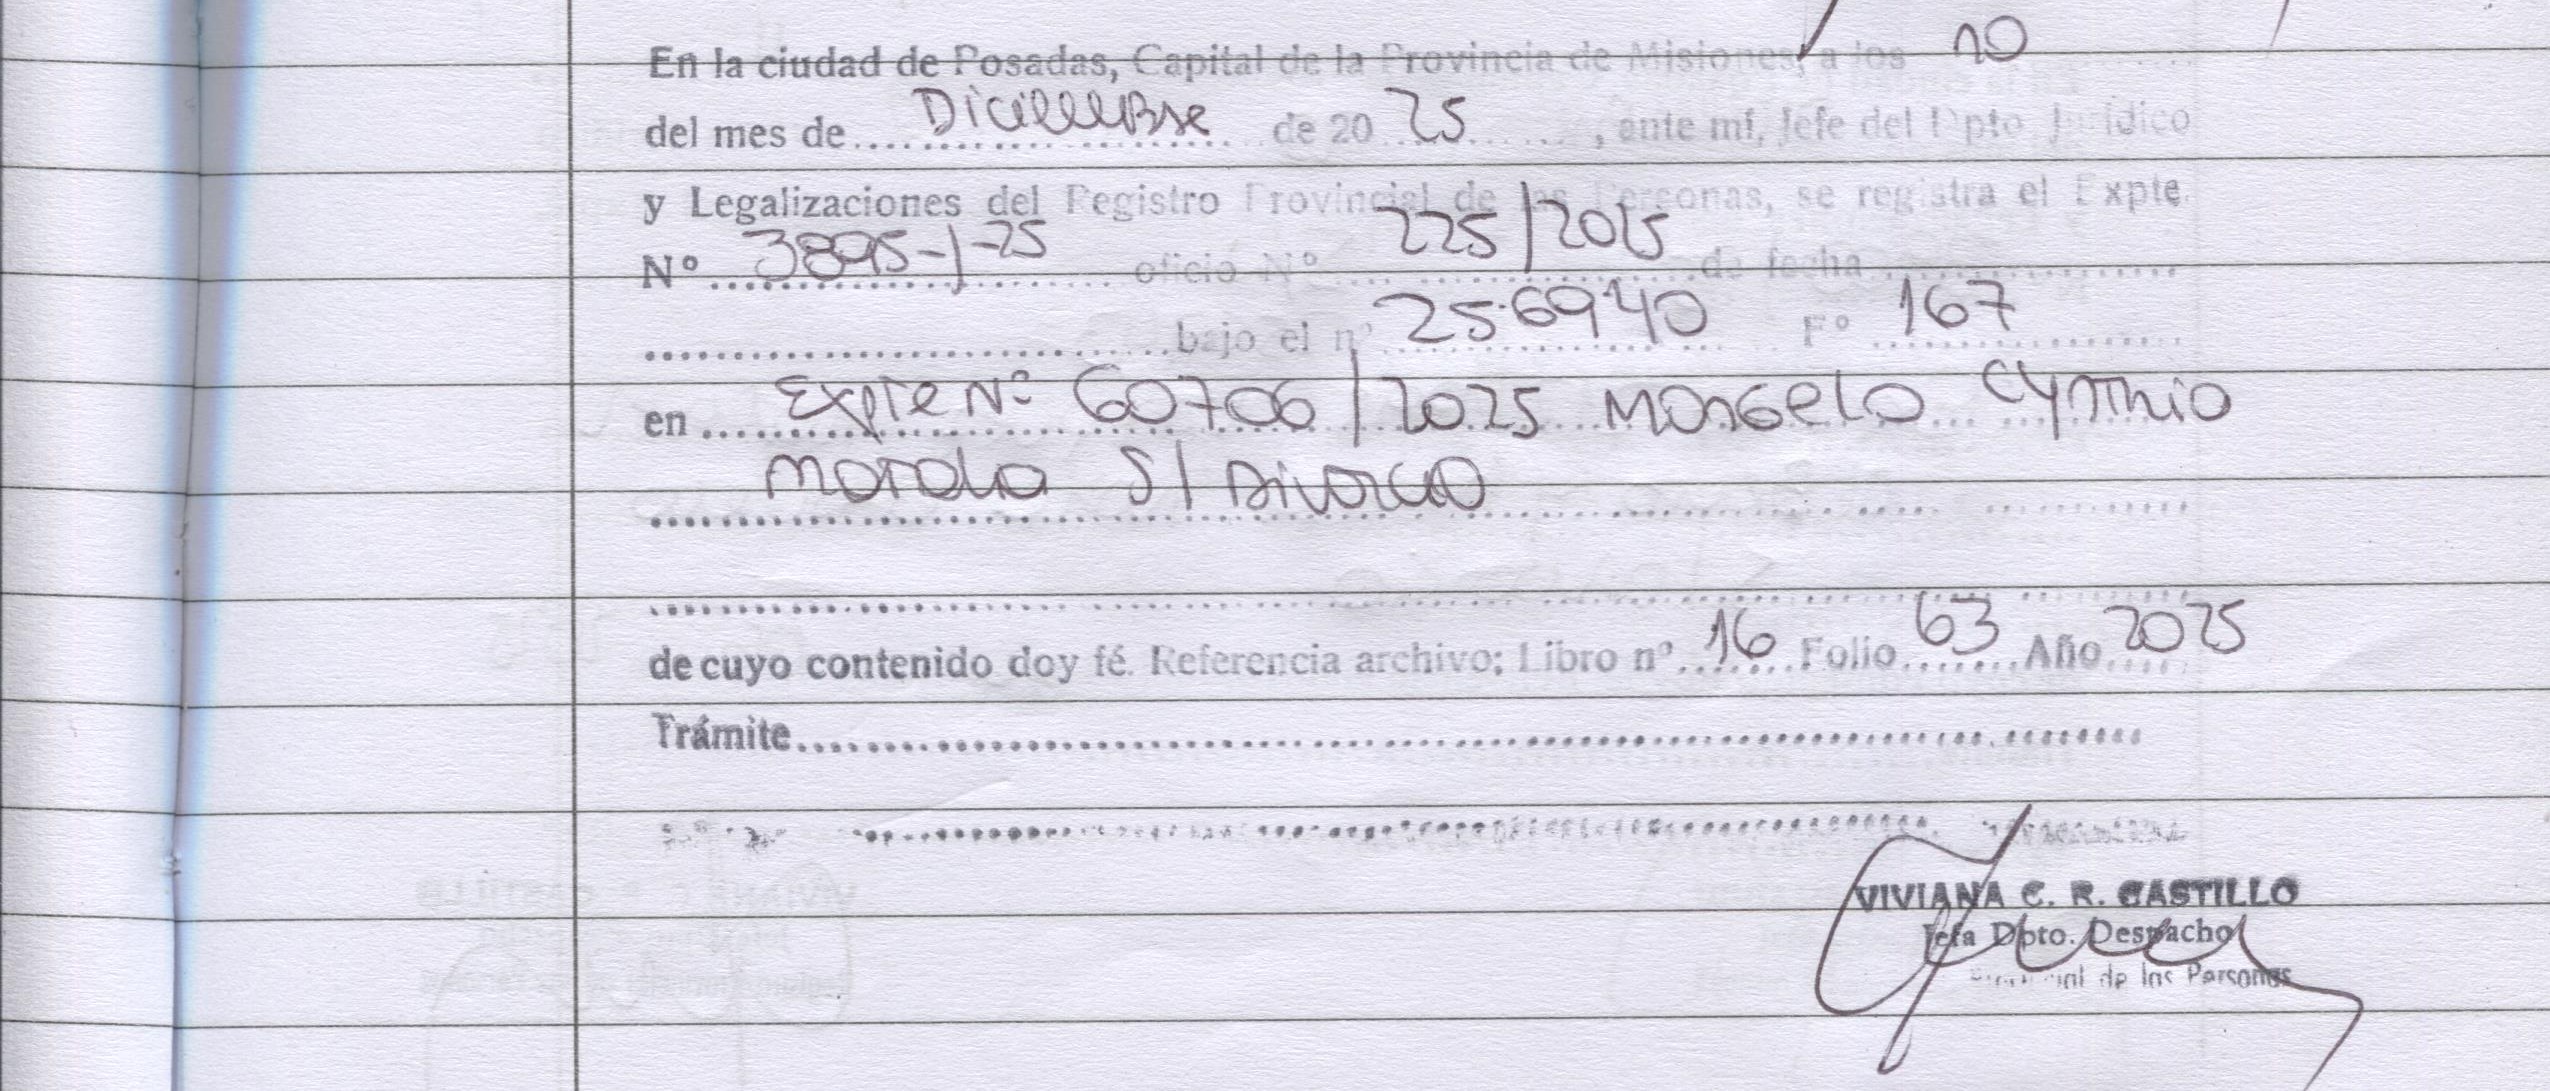 En la ciudad de Posadas, Capital de la Provincia de Misiones, a los 10
del mes de Diciembre de 20 25, ante mí, Jefe del Dpto. Jurídico
y Legalizaciones del Registro Provincial de las Personas, se registra el Expte.
Nº 3895-J-25 oficio Nº 225/2025 de fecha
bajo el nº 256940 Fº 167
en Expte Nº 60706/2025 Mongelo Cynthia
S/ Divorcio
de cuyo contenido doy fé. Referencia archivo; Libro nº 16 Folio 63 Año 2025
Trámite
VIVIANA C. R. CASTILLO
Jefa Dpto. Despacho
de las Personas